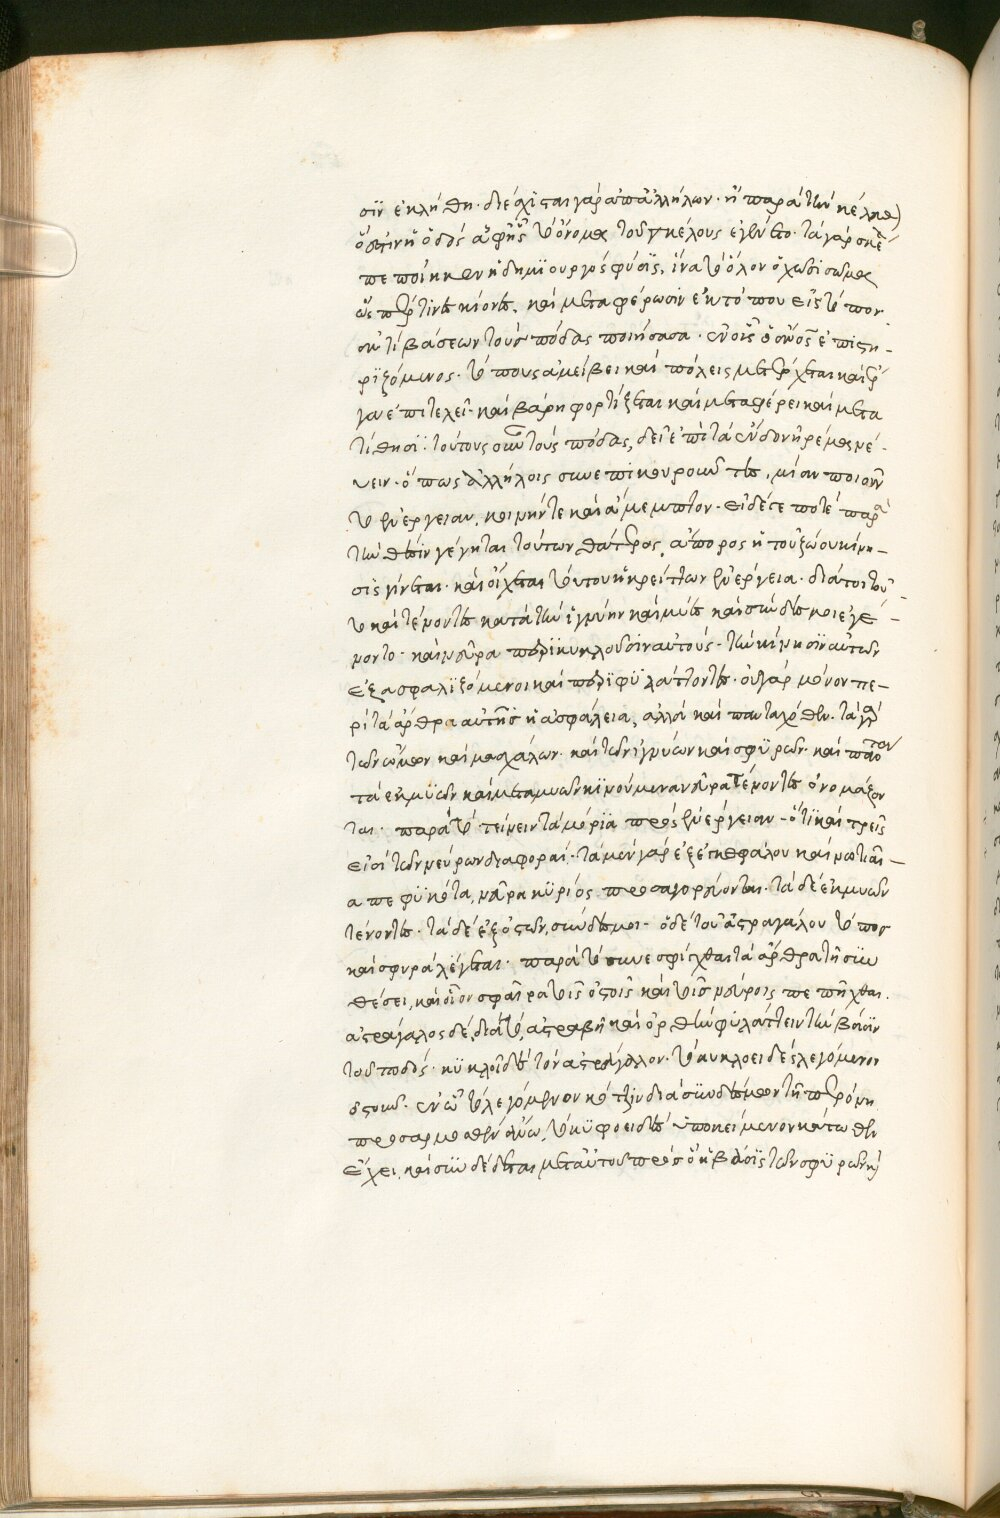 σϊν ἐκλήθη· διέσχισται γὰρ ἀπἀλλήλων· ἢ παρὰ τὴν κέλευθ(ον)
ὅ ἐστιν ἡ ὁδός ἀφῆς τὸ ὄνομα τοῦ σκέλους ἐγένετο· τὰ γὰρ σκέ
πεποίηκεν ἡ δημϊουργὸς φύσϊς, ἵνα τὸ ὅλον ὀχῶσϊ σῶμα
ὥσπερ τινὲς κίονες. καὶ μεταφέρωσιν ἐκ τόπου εἰς τόπον·
ἀντιβάσεων τοὺς πόδας ποιήσασα· ἐν οἷς ὁ ἄνος ἐπιστη-
ριζόμενος· τόπους ἀμείβει καὶ πόλεις μετέρχεται καὶ ἔρ
γα ἐπιτελεῖ· καὶ βάρη φορτίζεται καὶ μεταφέρει καὶ μετα
τίθησϊ· τούτους οὖν τοὺς πόδας, δεῖ ἐπὶ τὰ ἔνδον ἠρέμα νέ-
νειν· ὅπως ἀλλήλοις συνεπικουροῦντες, μίαν ποιοῦν
τὸ ἐνέργειαν, κοινήν τε καὶ ἄμεμπτον· εἰ δέ γε ποτὲ παρὰ
τὴν θέσιν γένηται τούτων θάτερος, ἄπορος ἡ τοῦ ζώου κίνη-
σις γίνεται· καὶ οἴχεται τούτου ἡ κρείττων ἐνέργεια· διὰ τοι τοῦ-
το καὶ τένοντες κατὰ τὴν ἰγνύην καὶ μύες καὶ σύνδεσμοι ἐγέ-
νοντο· καὶ νεῦρα περϊκυκλοῦσϊν αὐτούς· τὴν κίνησϊν αὐτῶν
ἐξασφαλϊζόμενοι καὶ περϊφϋλάττοντες· οὐ γὰρ μόνον πε-
ρὶ τὰ ἄρθρα αὐτῆς ἡ ἀσφάλεια, ἀλλὰ καὶ πανταχόθεν· τὰ γὰρ
τῶν ὤμων καὶ μασχάλων· καὶ τῶν ἰγνύων καὶ σφϋρῶν· καὶ πάντων
τὰ ἐκ μϋῶν καὶ μεταμυῶν κϊνούμενα νεῦρα τένοντες ὀνομάζον
ται· παρὰ τὸ τείνειν τὰ μόρϊα πρὸς ἐνέργειαν· ὅτι καὶ τρεῖς
εἰσὶ τῶν νεύρων διαφοραί· τὰ μὲν γὰρ ἐξ ἐγκεφάλου καὶ νωτιαί-
α πεφϋκότα, νεῦρα κϋρίως προσαγορεύονται· τὰ δὲ ἐκ μυῶν
τένοντες· τὰ δὲ ἐξ ὀστῶν, σύνδεσμοι· ὁ δὲ τοῦ ἀστραγάλου τόπος
καὶ σφυρὰ λέγεται· παρὰ τὸ συνεσφίχθαι τὰ ἄρθρα τῇ συν
θέσει, καὶ οἷον σφαῖρα τοῖς ὀστοῖς καὶ τοῖς νεύροις πεπῆχθαι.
ἀστράγαλος δὲ, διὰ τὸ, ἀστραβῆ καὶ ὀρθὴν φϋλάττειν τὴν βάσϊν
τοῦ ποδός· κϋκλοῖ δὲ τὸν ἀστράγαλον· τὸ κυκλοειδὲς λεγόμενον
ὀστοῦν· ἐν ᾧ τὸ λεγόμενον κότζϊν διὰ σϋνδέσμων τῇ περόνῃ
προσαρμοσθὲν ἄνω, τὸ κϋφοειδὲς ὑποκείμενον κάτωθεν
ἔχει, καὶ συνδέδεται μεταὐτοῦ πρὸς ὃ ἡ βάσϊς τῶν σφϋρῶν κ(αὶ)